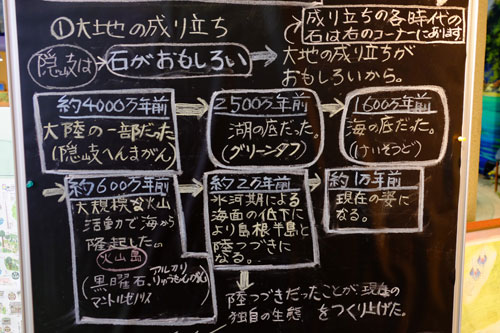 ①大地の成り立ち
成り立ちの各時代の
石は右のコーナーにあります
隠岐は
石がおもしろい
大地の成り立ちが
おもしろいから。
約4000万年前
大陸の一部だった
(隠岐へんまがん)
2500万年前
湖の底だった。
(グリーンタフ)
1600万年前
海の底だった。
(けいそうど)
約600万年前
大規模な火山
活動で海から
隆起した。
火山島
(黒曜石、アルカリ
りゅうもんがん
マントルゼノリス)
約2万年前
氷河期による
海面の低下に
より島根半島と
陸つづきに
なる。
約1万年前
現在の姿に
なる。
陸つづきだったことが現在の
独自の生態をつくり上げた。